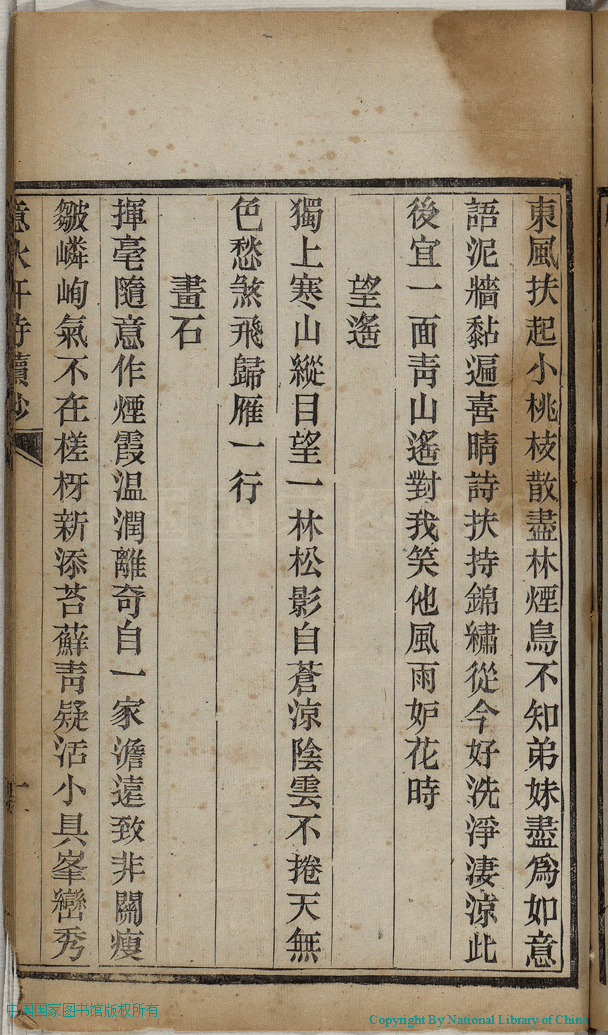 東風扶起小桃枝散盡林煙鳥不知弟妹盡爲如意
語泥牆黏遍喜晴詩扶持錦繡從今好洗淨淒涼此
後宜一面靑山遙對我笑他風雨妒花時
望遙
獨上寒山縱目望一林松影自蒼涼陰雲不捲天無
色愁煞飛歸雁一行
畫石
揮毫隨意作煙霞温潤離奇自一家澹遠致非關瘦
皺嶙峋氣不在槎枒新添苔蘚靑疑活小具峯巒秀
中国国家图书馆版权所有
Copyright By National Library of China